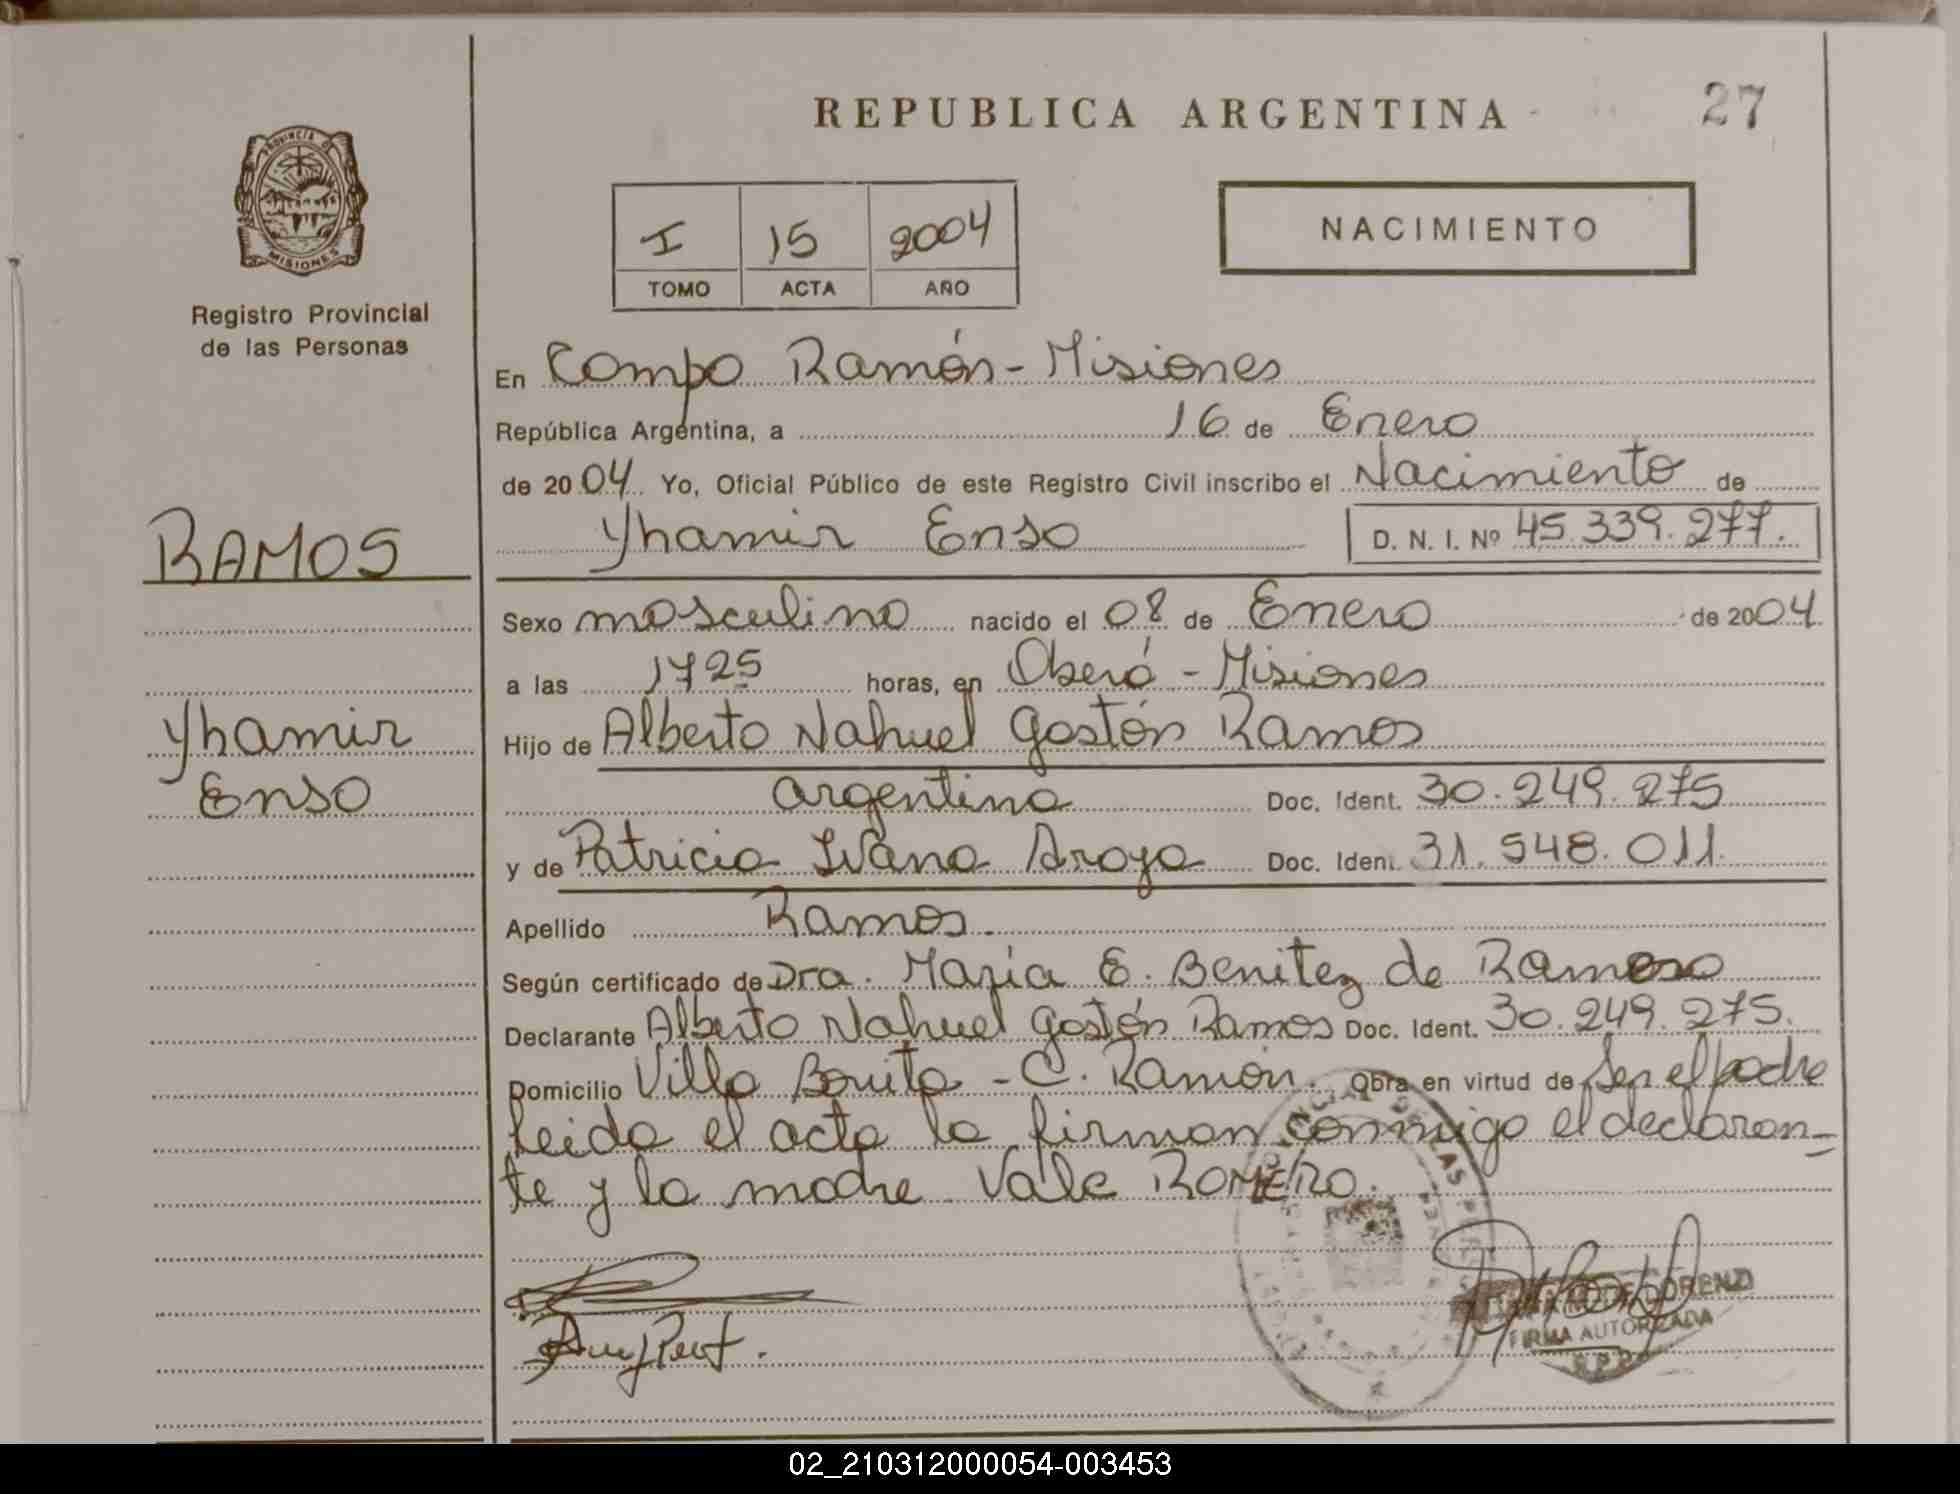 REPUBLICA ARGENTINA
27
PROVINCIA DE
MISIONES
Registro Provincial
de las Personas
I 15 2004
TOMO ACTA AÑO
NACIMIENTO
En Campo Ramón - Misiones
República Argentina, a 16 de Enero
de 2004 Yo, Oficial Público de este Registro Civil inscribo el Nacimiento de
Yhamir Enso D. N. I. Nº 45.339.277.
RAMOS
Sexo masculino nacido el 08 de Enero de 2004
a las 1725 horas, en Oberá - Misiones
Yhamir
Enso
Hijo de Alberto Nahuel Gastón Ramos
argentino Doc. Ident. 30.249.275
y de Patricia Ivana Aroya Doc. Iden. 31.548.011.
Apellido Ramos.
Según certificado de Dra. María E. Benitez de Romero
Declarante Alberto Nahuel Gastón Ramos Doc. Ident. 30.249.275.
Domicilio Villa Bonita - C. Ramón. Obra en virtud de Ser el padre
leida el acta la firman conmigo el declaran-
te y la madre Vale ROMERO.
DE LORENZI
FIRMA AUTORIZADA
02_210312000054-003453